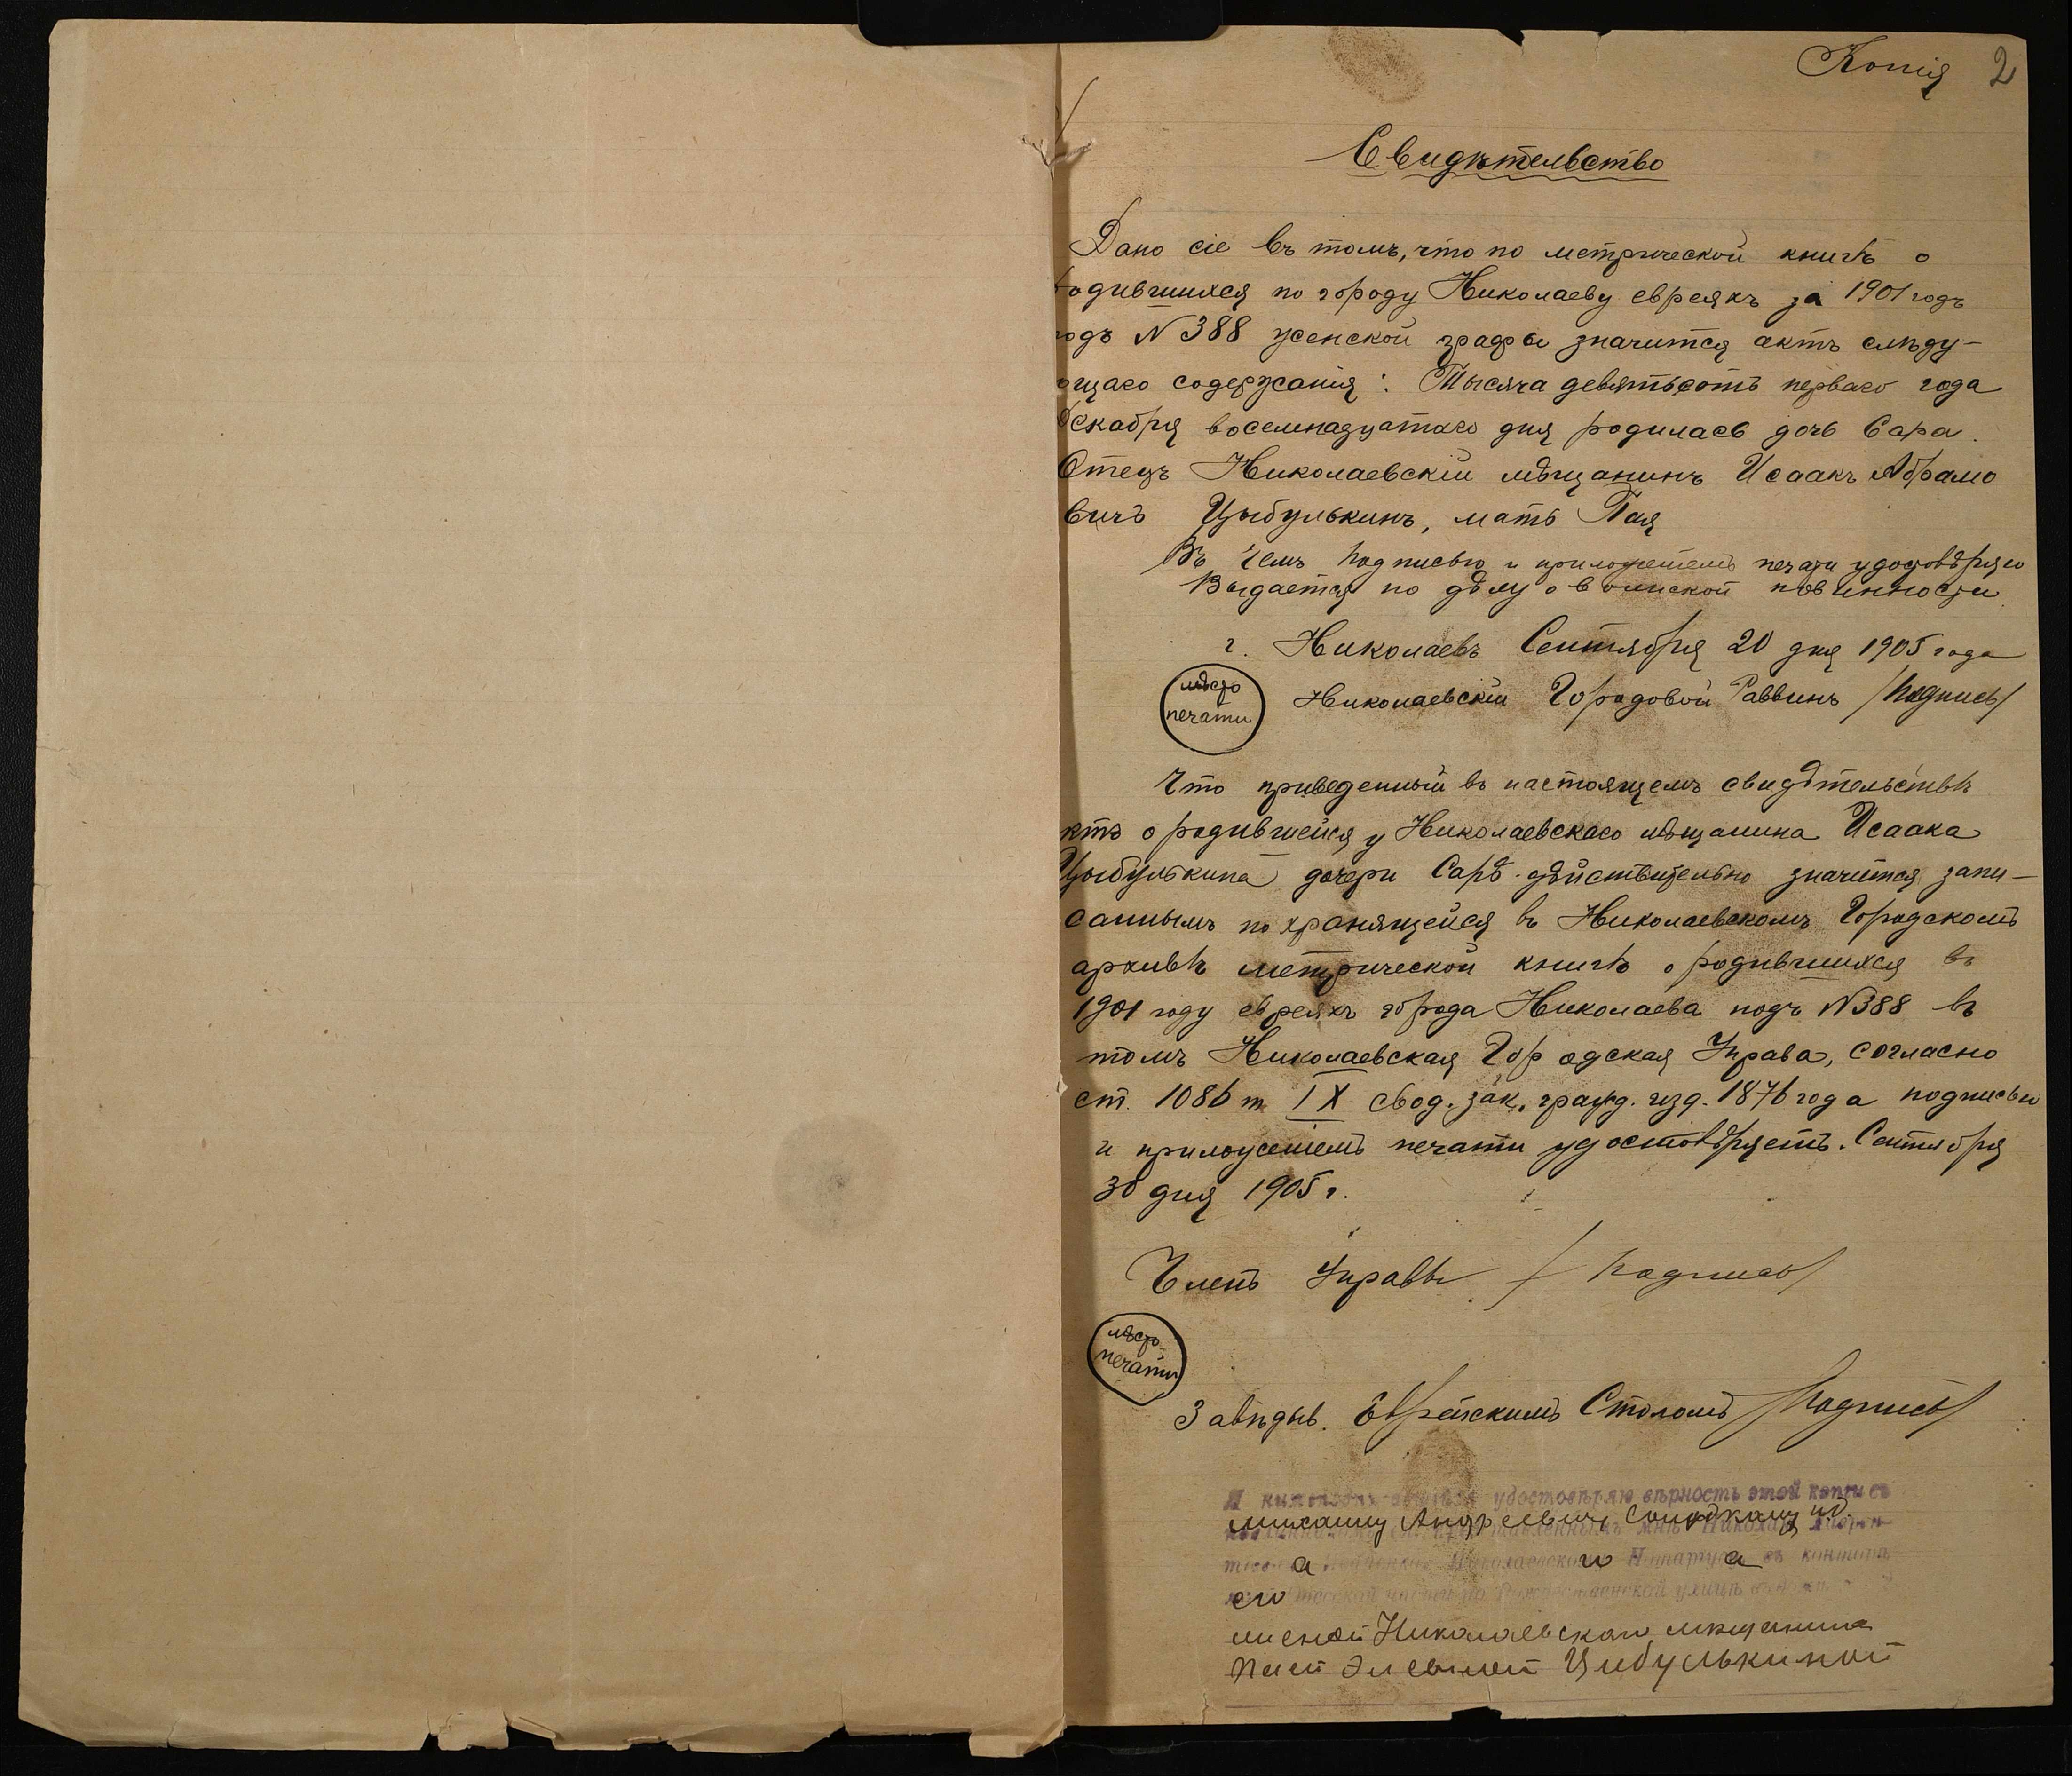 Копія 2
Свидѣтельство
Дано сіе въ томъ, что по метрической книгѣ о
родившихся по городу Николаеву евреяхъ за 1901 годъ
подъ N 388 женской графы значится актъ слѣду-
ющаго содержанія: Тысяча девятьсотъ перваго года
Декабря восемнадцатаго дня родилась дочь Сара.
Отецъ Николаевскій мѣщанинъ Исаакъ Абрамо
вичъ Цыбулькинъ, мать Пая
Въ чемъ подписью и приложеніемъ печати удостовѣряю
Выдается по дѣлу о воинской повинности.
г. Николаевъ Сентября 20 дня 1905 года
мѣсто
печати
Николаевскій Городовой Раввинъ /подпись/
Что приведенный въ настоящемъ свидѣтельствѣ
актъ о родившейся у Николаевскаго мѣщанина Исаака
Цыбулькина дочери Сарѣ дѣйствительно значится запи-
саннымъ по хранящейся въ Николаевскомъ Городскомъ
архивѣ метрической книгѣ о родившихся въ
1901 году евреяхъ города Николаева подъ N388 въ
томъ Николаевская Городская Управа, согласно
ст. 1086 т IX свод. зак. гражд. изд. 1876 года подписью
и приложеніемъ печати удостовѣряетъ. Сентября
30 дня 1905 г.
Членъ Управы /подпись/
мѣсто
печати
Завѣдыв. Еврейскимъ Столомъ /подпись/
Я удостовѣряю вѣрность этой копіи съ
Михаилу Андреевичу ид.
а го Нотаріуса а въ конторѣ
его части по улицѣ
женой Николаевскаго мѣщанина
Паей Цибулькиной